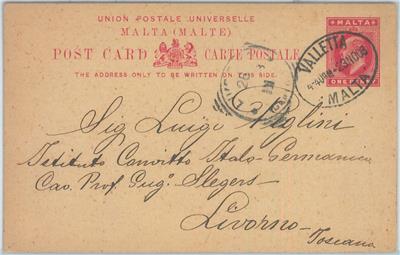 UNION POSTALE UNIVERSELLE
MALTA (MALTE)
POST CARD CARTE POSTALE
THE ADDRESS ONLY TO BE WRITTEN ON THIS SIDE.
MALTA
ONE PENNY
VALLETTA
MALTA
Sig Luigi
Istituto Convitto Italo-Germanico
Cav. Prof. Eug. Slegers
Livorno
Toscana